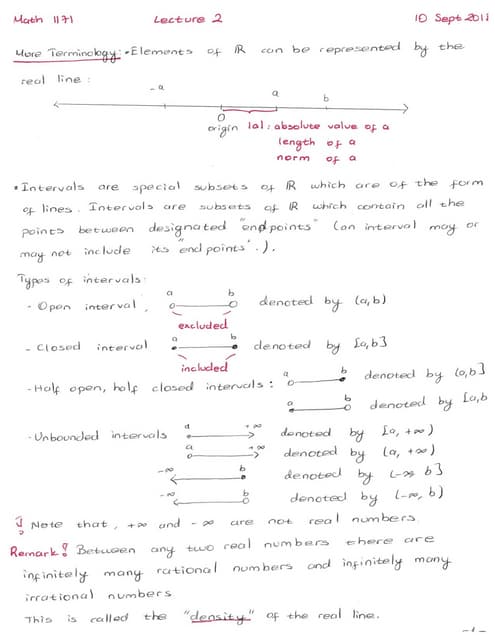 Math 1171 Lecture 2 10 Sept 2011
More Terminology: • Elements of ℝ can be represented by the
real line :
-a a b
0
origin |a| : absolute value of a
length of a
norm of a
• Intervals are special subsets of ℝ which are of the form
of lines. Intervals are subsets of ℝ which contain all the
points between designated "endpoints" (an interval may or
may not include its "endpoints".).
Types of intervals:
- Open interval, a b denoted by (a,b)
excluded
- Closed interval a b denoted by [a,b]
included
- Half open, half closed intervals : a b denoted by (a,b]
a b denoted by [a,b
- Unbounded intervals a +∞ denoted by [a, +∞)
a +∞ denoted by (a, +∞)
-∞ b denoted by (-∞, b]
-∞ b denoted by (-∞, b)
! Note that, +∞ and -∞ are not real numbers.
Remark! Between any two real numbers there are
infinitely many rational numbers and infinitely many
irrational numbers
This is called the "density" of the real line.
-1-